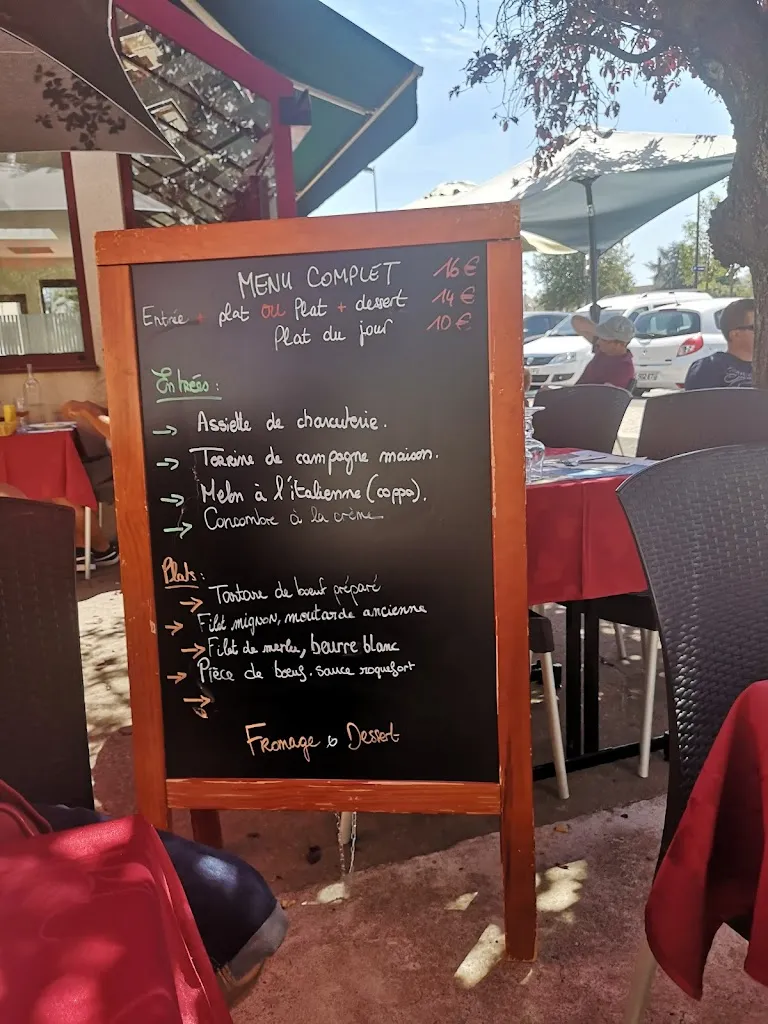 MENU COMPLET 16€
Entrée + plat ou Plat + dessert 14€
Plat du jour 10€
Entrées:
→ Assiette de charcuterie.
→ Terrine de campagne maison.
→ Melon à l'italienne (coppa).
→ Concombre à la crème
Plats:
→ Tartare de bœuf préparé
→ Filet mignon, moutarde ancienne
→ Filet de merlu, beurre blanc
→ Pièce de bœuf. sauce roquefort
→
Fromage & Dessert